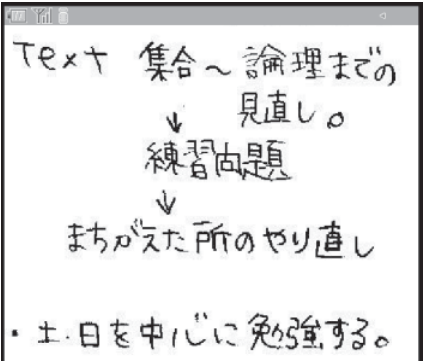 Text 集合～論理までの
見直し。
↓
練習問題
↓
まちがえた所のやり直し
・土・日を中心に勉強する。